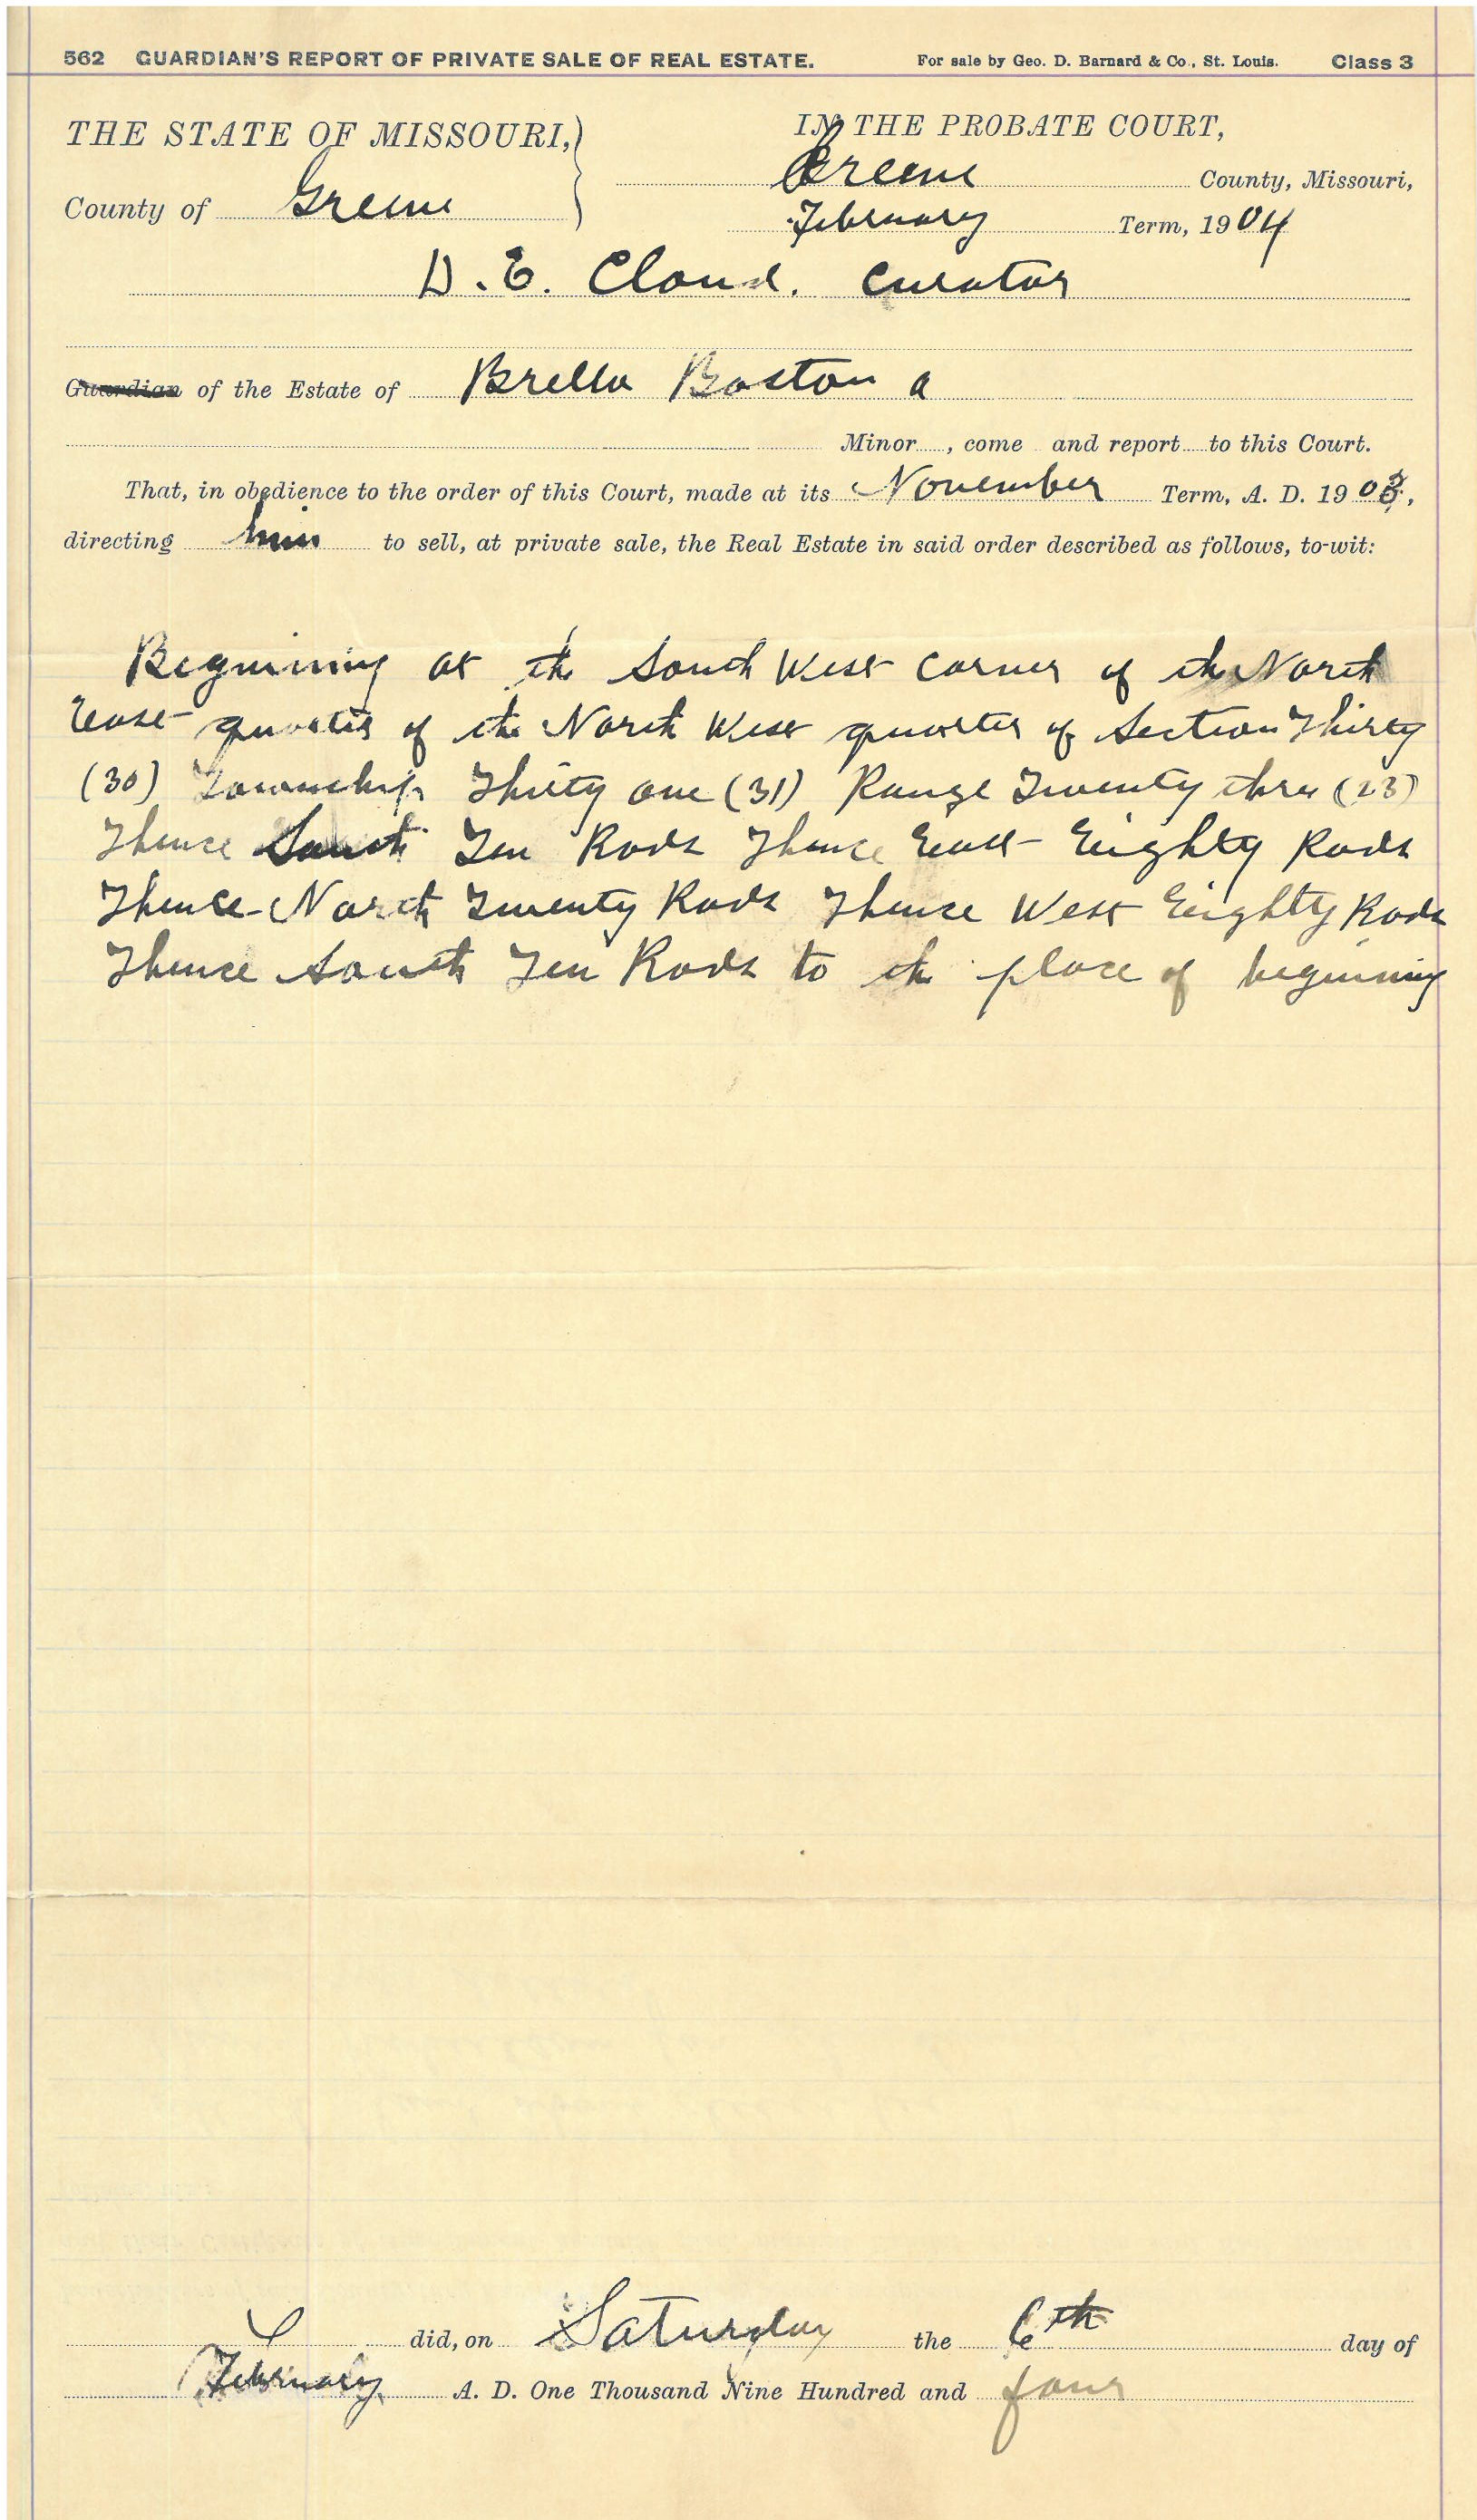 562 GUARDIAN'S REPORT OF PRIVATE SALE OF REAL ESTATE. For sale by Geo. D. Barnard & Co., St. Louis. Class 3
THE STATE OF MISSOURI, IN THE PROBATE COURT,
County of Greene Greene County, Missouri,
February Term, 1904
D. E. Cloud. Curator
Guardian of the Estate of Brella Boston a
Minor, come and report to this Court.
That, in obedience to the order of this Court, made at its November Term, A. D. 1903,
directing him to sell, at private sale, the Real Estate in said order described as follows, to-wit:
Beginning at the South West corner of the North
East quarter of the North West quarter of Section Thirty
(30) Township Thirty one (31) Range Twenty three (23)
Thence South Ten Rods Thence East Eighty Rods
Thence North Twenty Rods Thence West Eighty Rods
Thence South Ten Rods to the place of beginning
I did, on Saturday the 6th day of
February A. D. One Thousand Nine Hundred and four